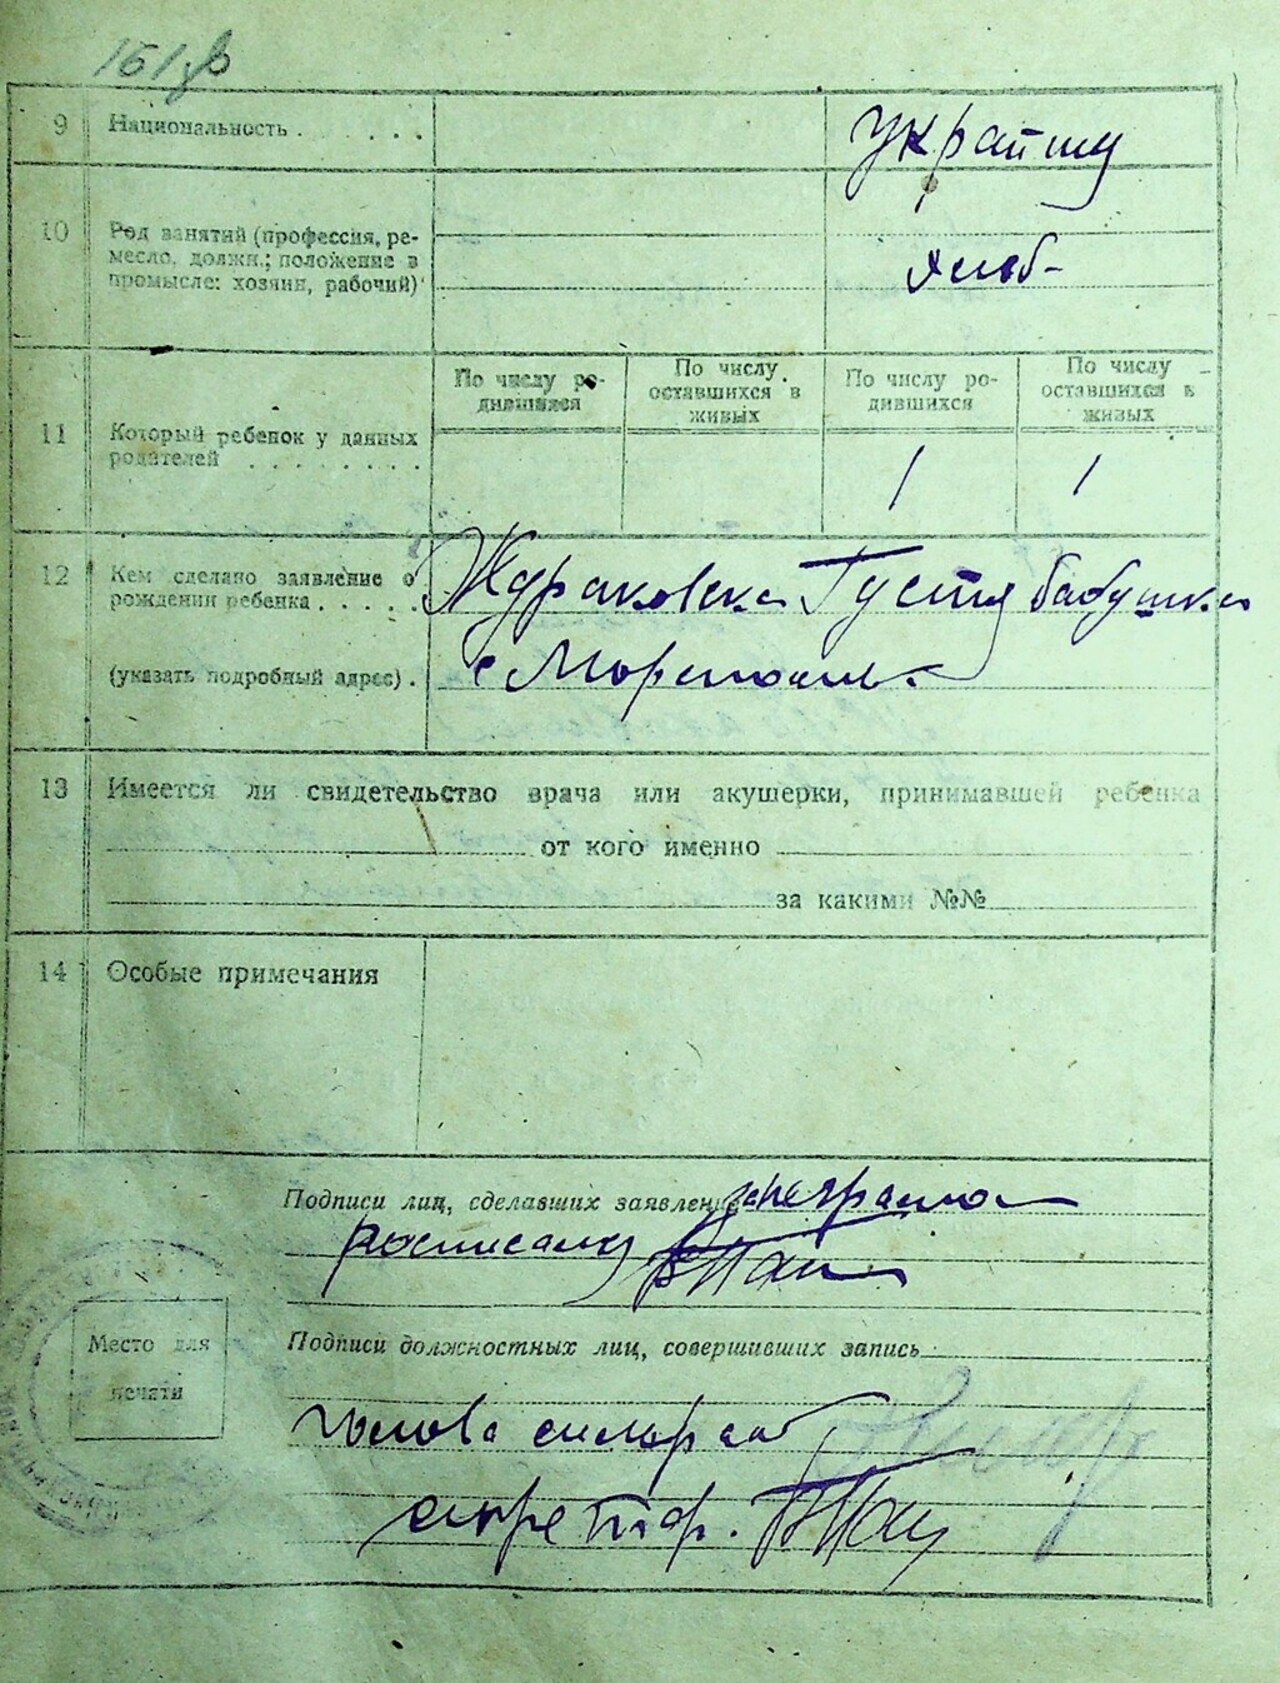 161 зв
9 Национальность . . . . . Украинц
10 Род занятий (профессия, ре-
месло, должн.; положение в
промысле: хозяин, рабочий) хлеб-
По числу ро-
дившихся
По числу
оставшихся в
живых
По числу ро-
дившихся
По числу
оставшихся в
живых
11 Который ребенок у данных
родателей . . . . . . . . 1 1
12 Кем сделано заявление о
рождении ребенка . . . . . Жураковска Густя бабушка
(указать подробный адрес) . с
13 Имеется ли свидетельство врача или акушерки, принимавшей ребенка
от кого именно
за какими №№
14 Особые примечания
Подписи лиц, сделавших заявление за неграмот
росписался
Место для
печати
Подписи должностных лиц, совершивших запись
голова сильрад
секретар.